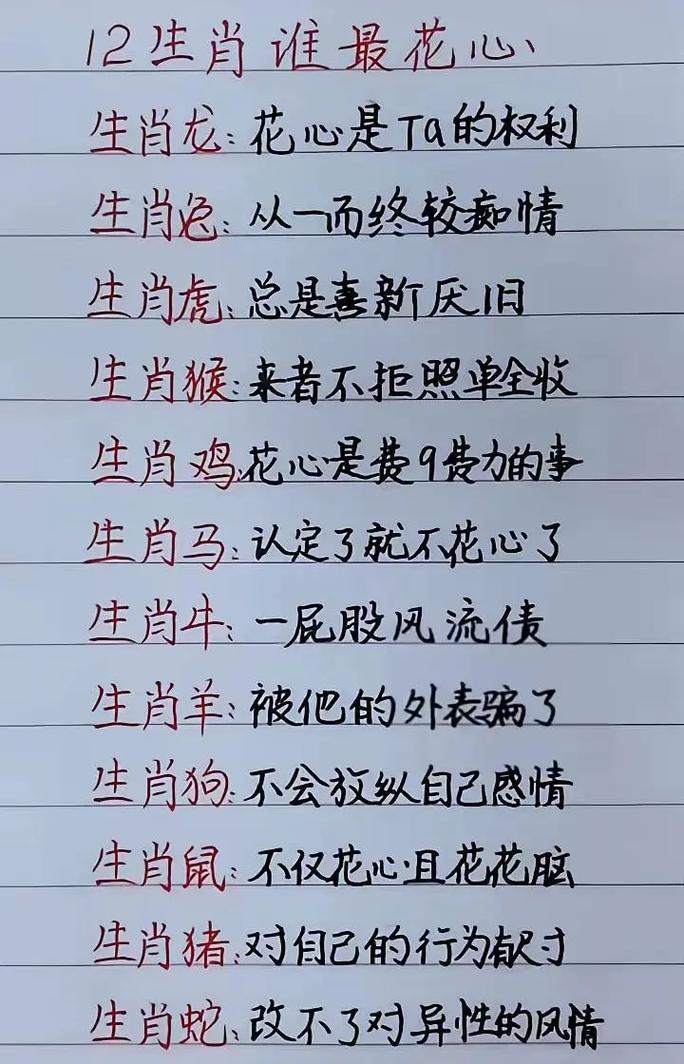 12生肖谁最花心
生肖龙:花心是Ta的权利
生肖兔:从一而终较痴情
生肖虎:总是喜新厌旧
生肖猴:来者不拒照单全收
生肖鸡:花心是费9费力的事
生肖马:认定了就不花心了
生肖牛:一屁股风流债
生肖羊:被他的外表骗了
生肖狗:不会放纵自己感情
生肖鼠:不仅花心且花花脑
生肖猪:对自己的行为有尺寸
生肖蛇:改不了对异性的风情